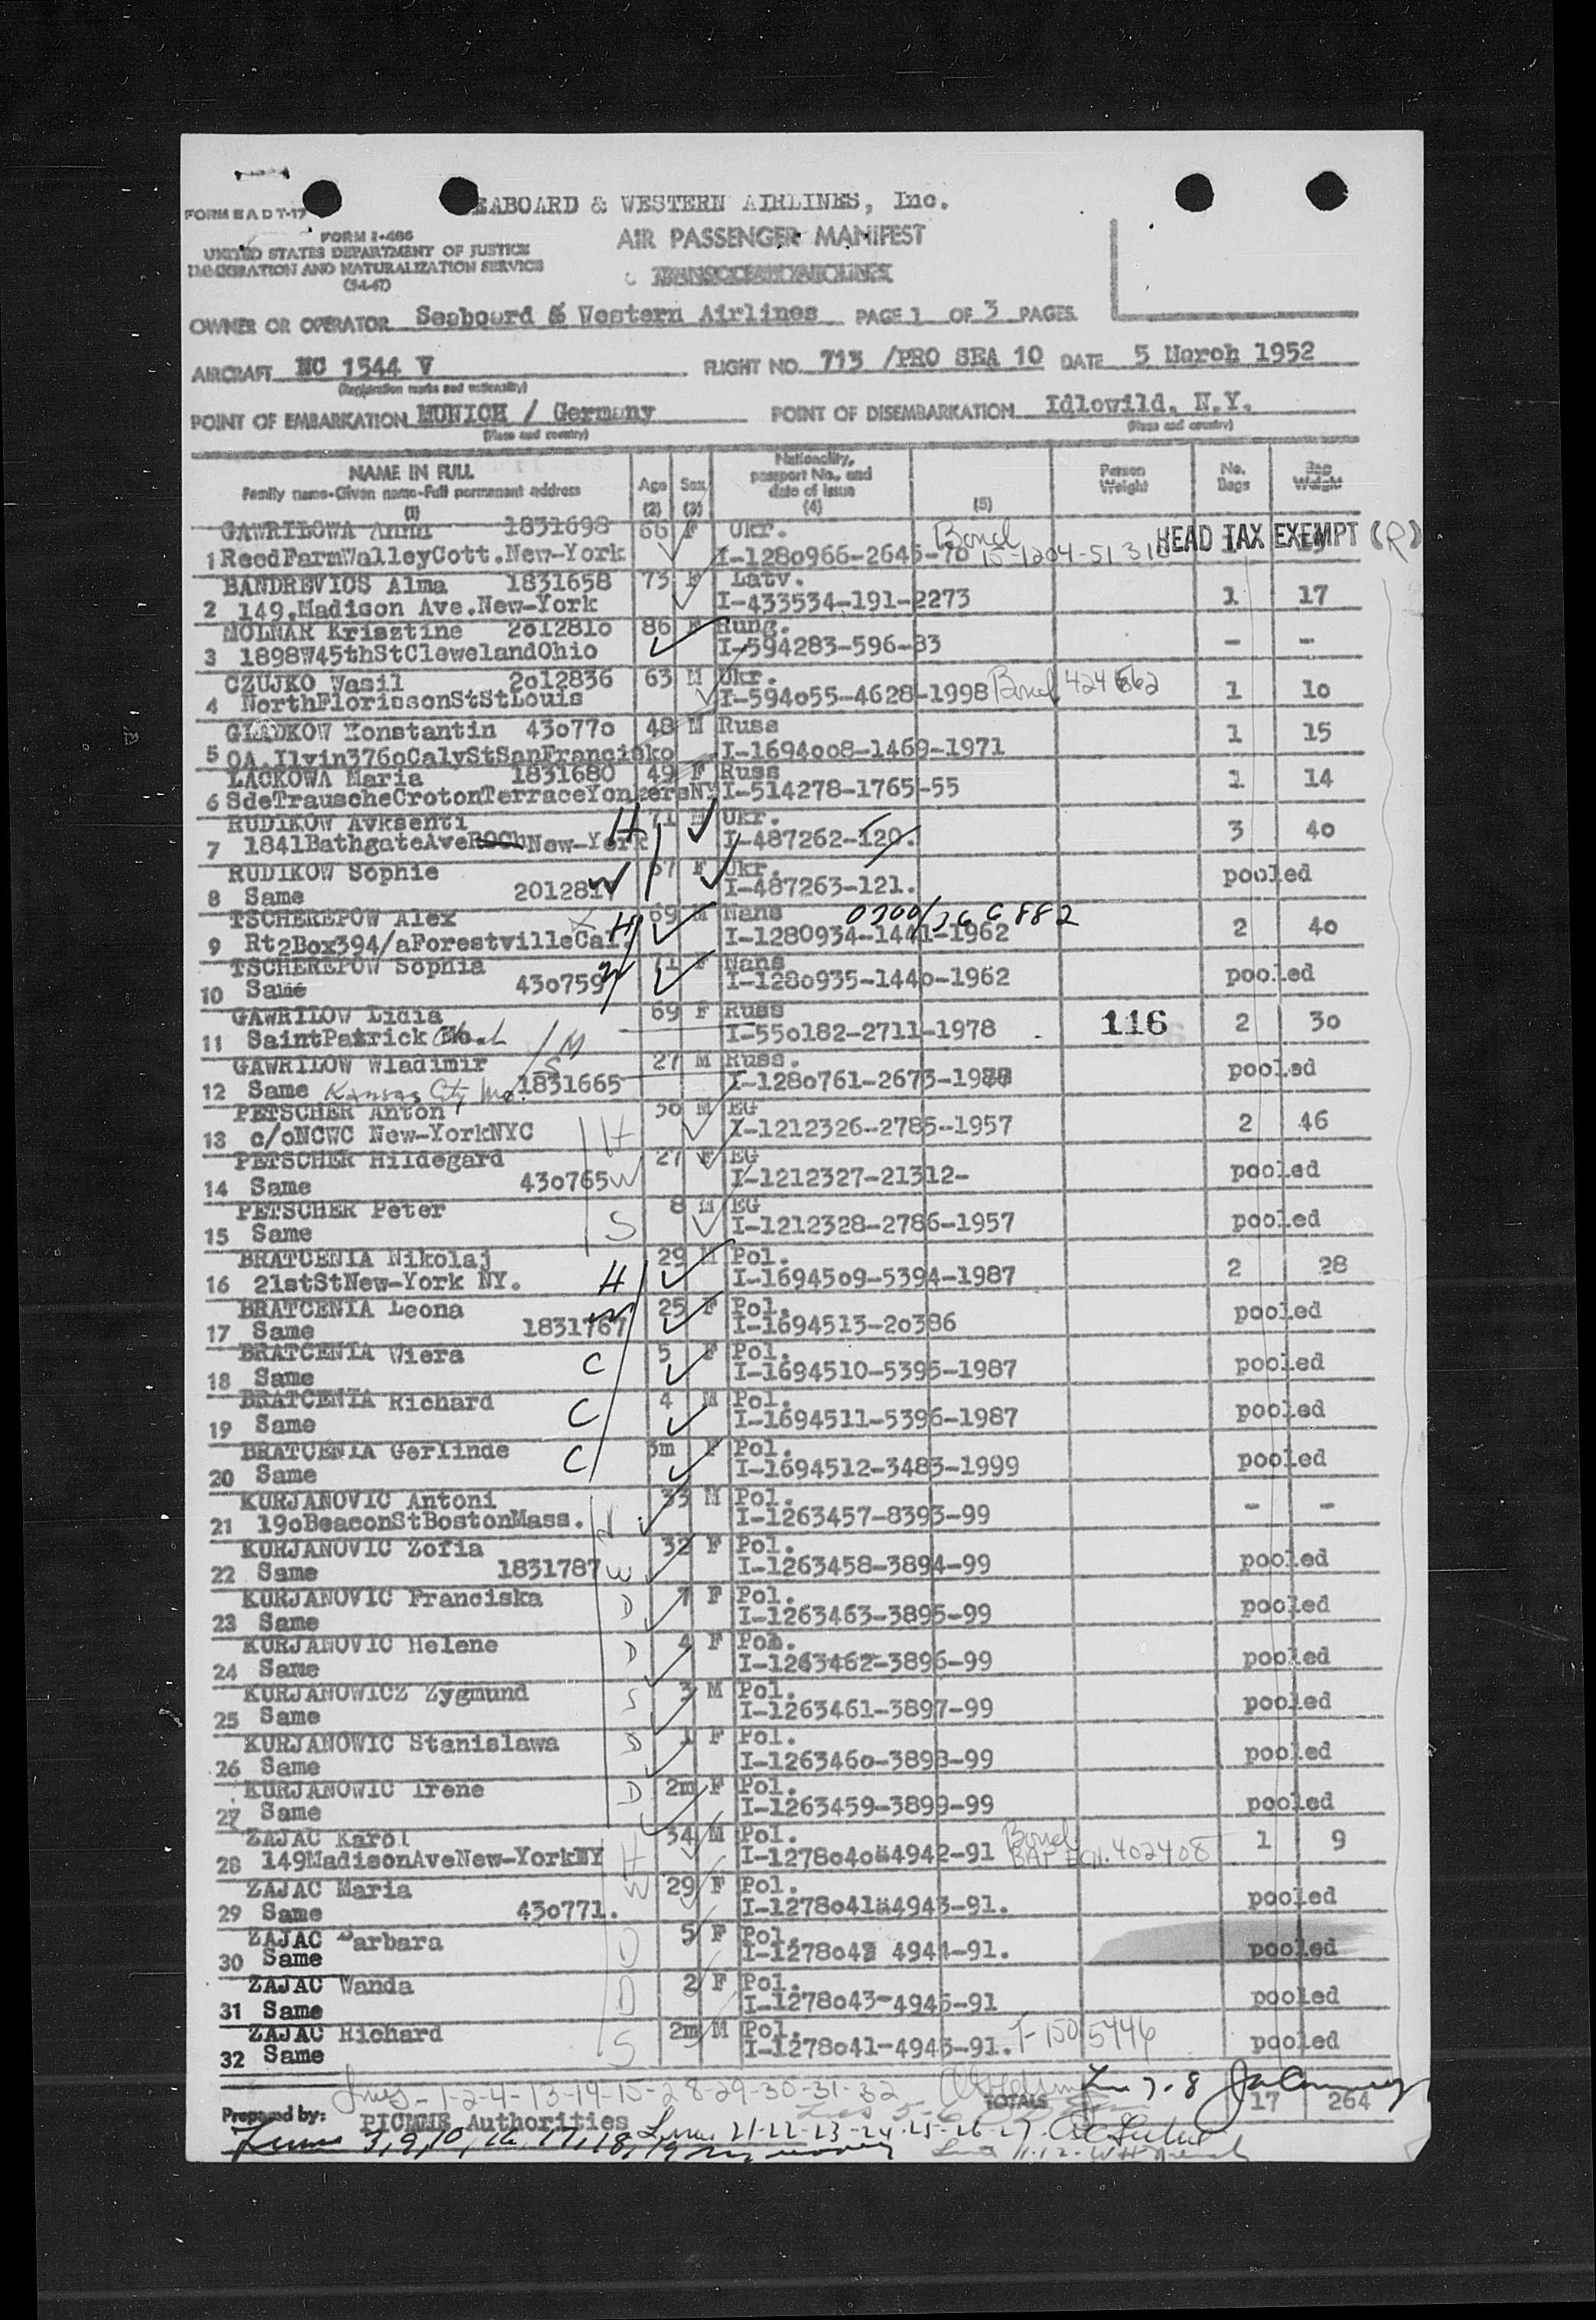 SEABOARD & WESTERN AIRLINES, Inc.
FORM S A D T-17
FORM I-466
AIR PASSENGER MANIFEST
UNITED STATES DEPARTMENT OF JUSTICE
IMMIGRATION AND NATURALIZATION SERVICE
OWNER OR OPERATOR Seaboard & Western Airlines PAGE 1 OF 3 PAGES
AIRCRAFT NC 1544 V FLIGHT NO. 713 /PRO SEA 10 DATE 5 March 1952
(Registration marks and nationality)
POINT OF EMBARKATION MUNICH / Germany POINT OF DISEMBARKATION Idlewild, N.Y.
(Place and country) (Place and country)
NAME IN FULL
Family name-Given name-Full permanent address
(1)
Age
(2)
Sex
(3)
Nationality,
passport No., and
date of issue
(4)
(5)
Person
Weight
No.
Bags
Bag
Weight
GAWRILOWA Anna 1831698 66 F Ukr. Bond HEAD TAX EXEMPT (R)
1 ReedFarmWalleyCott.New-York I-1280966-2645-70
BANDREVICS Alma 1831658 73 F Latv.
2 149.Madison Ave.New-York I-433534-191-2273 1 17
MOLNAR Krisztine 2012810 86 F Hung.
3 1898W45thStClewelandOhio I-594283-596-83 - -
CZUJKO Wasil 2012836 63 M Ukr.
4 NorthFlorissonStStLouis I-594055-4628-1998 Bond 1 10
GLADKOW Konstantin 430770 48 M Russ
5 OA.Ilvin3760CalyStSanFrancisko I-1694008-1469-1971 1 15
LACKOWA Maria 1831680 49 F Russ
6 SdeTrauscheCrotonTerraceYonkersNY I-514278-1765-55 1 14
RUDIKOW Avksenti H 71 M Ukr.
7 1841BathgateAve New-York I-487262-120. 3 40
RUDIKOW Sophie W 67 F Ukr. pooled
8 Same 2012817 I-487263-121.
TSCHEREPOW Alex 69 M Nans 0300/366882
9 Rt2Box394/aForestvilleCal. H I-1280934-1441-1962 2 40
TSCHEREPOW Sophia W 71 F Nans
10 Same 430759 I-1280935-1440-1962 pooled
GAWRILOW Lidia 69 F Russ
11 SaintPatrick M I-550182-2711-1978 116 2 30
GAWRILOW Wladimir S 27 M Russ.
12 Same Kansas City, Mo. 1831665 I-1280761-2673-1978 pooled
PETSCHER Anton 30 M EG
13 c/oNCWC New-YorkNYC H I-1212326-2785-1957 2 46
PETSCHER Hildegard 27 F EG
14 Same 430765 W I-1212327-21312- pooled
PETSCHER Peter 8 M EG
15 Same S I-1212328-2786-1957 pooled
BRATCENIA Nikolaj 29 M Pol.
16 21stStNew-York NY. H I-1694509-5394-1987 2 28
BRATCENIA Leona W 25 F Pol.
17 Same 1831767 I-1694513-20386 pooled
BRATCENIA Wiera C 5 F Pol.
18 Same I-1694510-5395-1987 pooled
BRATCENIA Richard C 4 M Pol.
19 Same I-1694511-5396-1987 pooled
BRATCENIA Gerlinde C 3m F Pol.
20 Same I-1694512-3483-1999 pooled
KURJANOVIC Antoni 33 M Pol.
21 190BeaconStBostonMass. H I-1263457-8393-99 - -
KURJANOVIC Zofia 32 F Pol.
22 Same 1831787 W I-1263458-3894-99 pooled
KURJANOVIC Franciska D 7 F Pol.
23 Same I-1263463-3895-99 pooled
KURJANOVIC Helene D 4 F Pol.
24 Same I-1263462-3896-99 pooled
KURJANOWICZ Zygmund S 3 M Pol.
25 Same I-1263461-3897-99 pooled
KURJANOWIC Stanislawa D 1 F Pol.
26 Same I-1263460-3898-99 pooled
KURJANOWIC Irene D 2m F Pol.
27 Same I-1263459-3899-99 pooled
ZAJAC Karol 34 M Pol. Bond
28 149MadisonAveNew-YorkNY H I-1278040-4942-91 402408 1 9
ZAJAC Maria W 29 F Pol.
29 Same 430771. I-1278041-4943-91. pooled
ZAJAC Barbara 5 F Pol.
30 Same D I-1278042 4944-91. pooled
ZAJAC Wanda 2 F Pol.
31 Same D I-1278043-4945-91 pooled
ZAJAC Richard 2m M Pol. T-1505446
32 Same S I-1278041-4943-91. pooled
Lines -1-2-4-13-14-15-28-29-30-31-32 TOTALS Lin 7-8 17 264
Prepared by: PICMME Authorities Lines 21-22-23-24-25-26-27
Lines 3,9,10,16,17,18,19 Lines 11-12